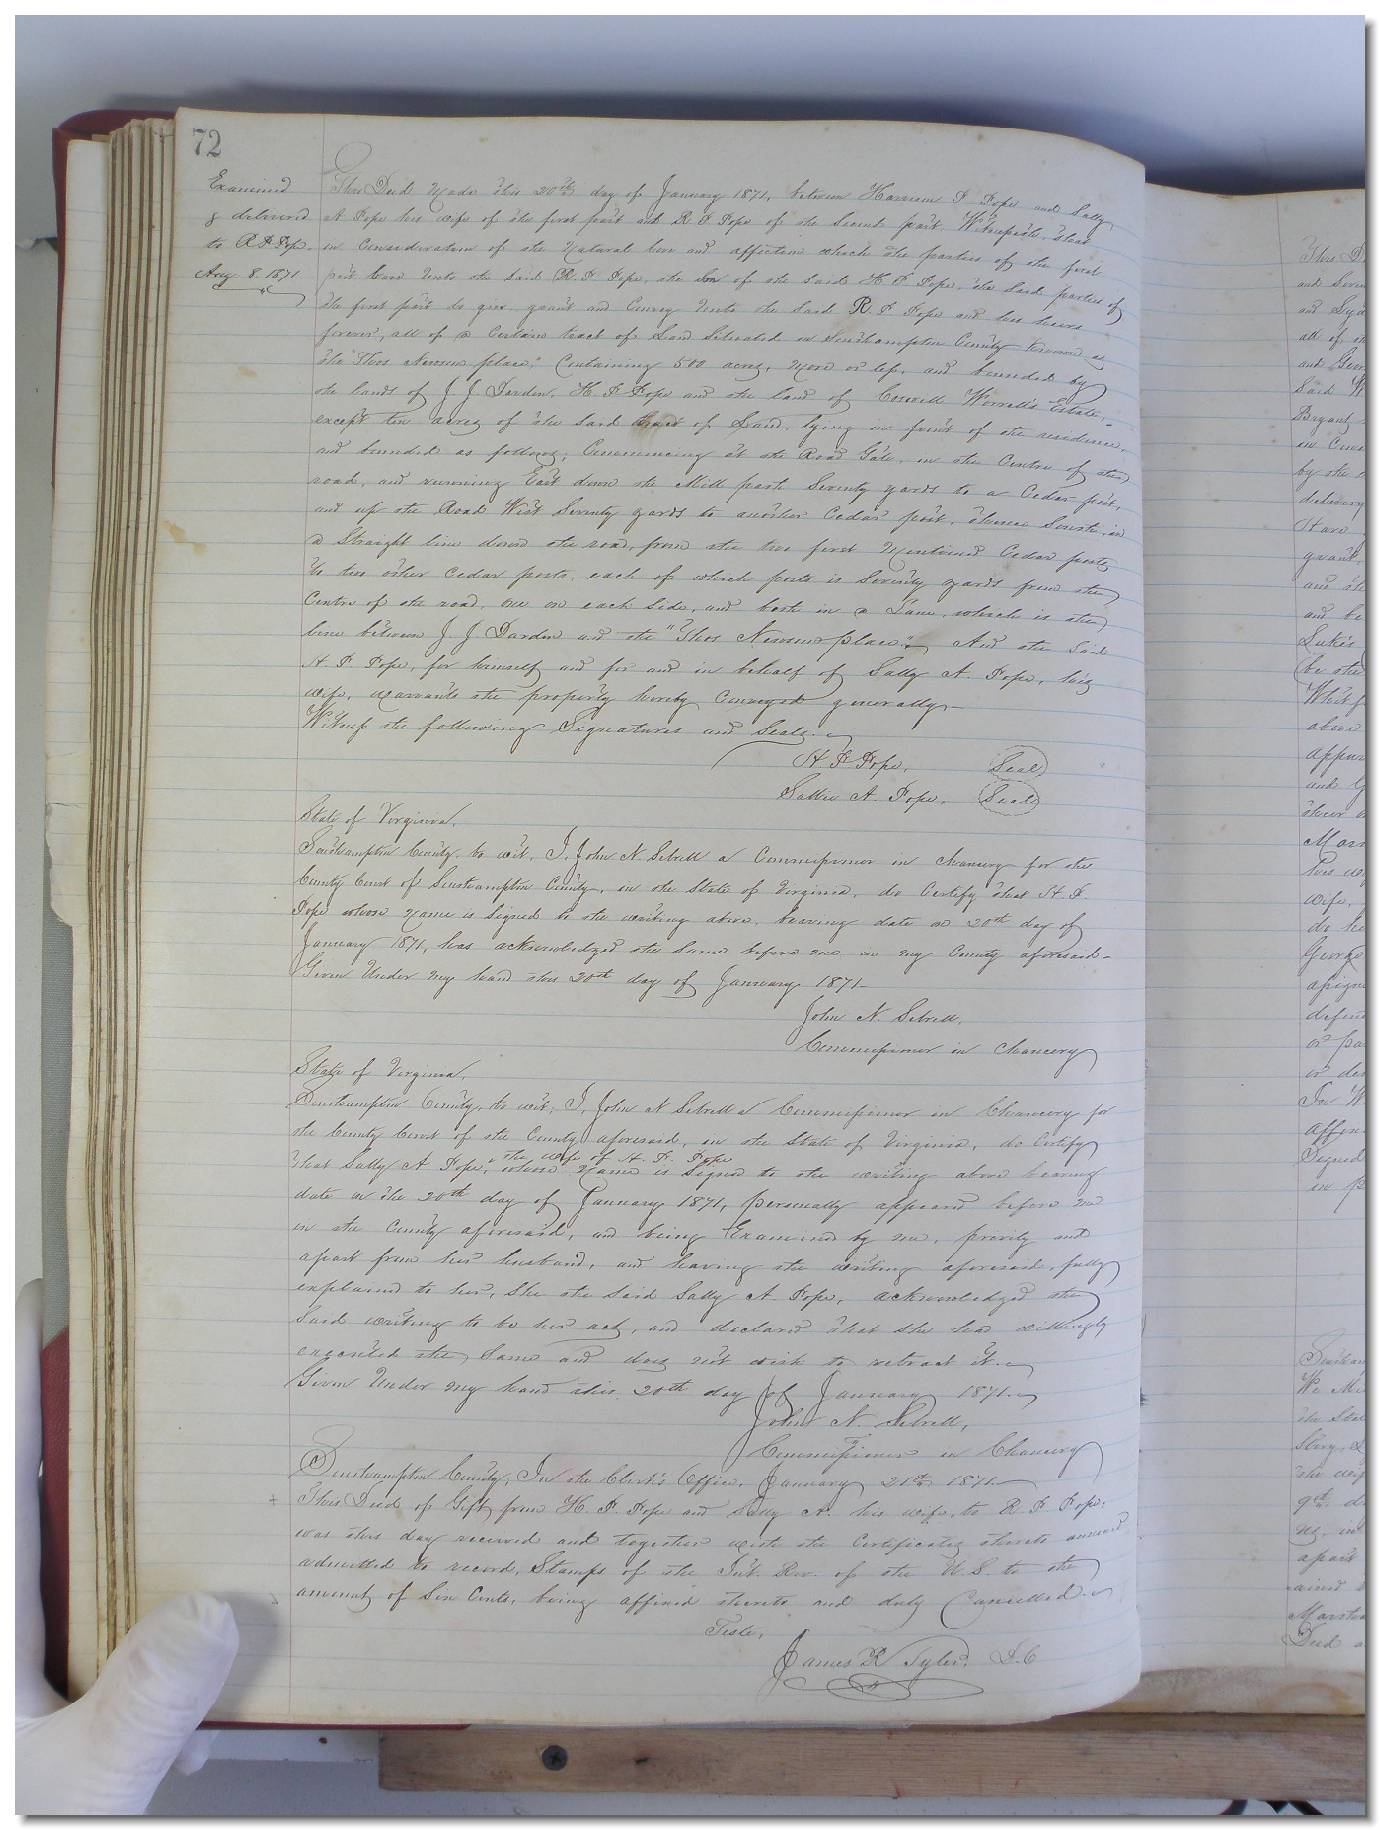 72
Examined
& delivered
to R F Pope.
Aug 8 1871
This Deed Made this 20th day of January 1871, between Harrison P Pope and Sally
A Pope his wife of the first part and R F Pope of the Second part. Witnesseth, that
in Consideration of the Natural love and affection which the parties of the first
part bear Unto the Said R. F. Pope, the Son of the Said H. P. Pope, the Said parties of
the first part do give, grant and Convey Unto the Said R. F Pope and his heirs
forever, all of a Certain tract of Land Situated in Southampton County Known as
the "Thos Newsom place," Containing 500 acres, More or less, and bounded by
the lands of J. J. Darden, H. P Pope and the land of Worrell's Estate,
except ten acres of the Said tract of Land, lying in front of the residence,
and bounded as follows; Commencing at the Road Gate, in the Centre of the
road, and running East down the Mill path Seventy yards to a Cedar post,
and up the Road West Seventy yards to another Cedar post, thence South, in
a Straight line down the road, from the two first Mentioned Cedar posts,
to two other Cedar posts, each of which posts is Seventy yards from the
Centre of the road, one on each Side, and both in a Lane, which is the
line between J. J. Darden and the "Thos Newsom place". And the Said
H. P. Pope, for himself and for and in behalf of Sally A. Pope, his
wife, warrants the property hereby Conveyed generally-
Witness the following Signatures and Seals.
H P Pope, Seal
Sallie A. Pope. Seal
State of Virginia,
Southampton County, to wit, I, John N. Sebrell a Commissioner in Chancery for the
County Court of Southampton County, in the State of Virginia, do Certify that H. P.
Pope whose Name is Signed to the writing above, bearing date on 20th day of
January 1871, has acknowledged the Same before me in my County aforesaid-
Given Under my hand this 20th day of January 1871-
John N. Sebrell,
Commissioner in Chancery
State of Virginia,
Southampton County, to wit; I, John N Sebrell a Commissioner in Chancery for
the County Court of the County aforesaid, in the State of Virginia, do Certify
the wife of H. P. Pope
that Sally A Pope, whose Name is Signed to the writing above bearing
date on the 20th day of January 1871, personally appeared before me
in the County aforesaid, and being Examined by me, privily and
apart from her husband, and having the writing aforesaid, fully
explained to her, She the Said Sally A. Pope, acknowledged the
Said writing to be her act, and declared that she had willingly
executed the Same and does not wish to retract it.
Given Under my hand this 20th day of January 1871.
John N. Sebrell,
Commissioner in Chancery
Southampton County, In the Clerk's Office, January 21st 1871-
This Deed of Gift from H. P Pope and Sally A. his wife, to R F. Pope,
was this day received and together with the Certificates thereto annexed
admitted to record, Stamps of the Int. Rev. of the U.S. to the
amount of Cents, being affixed thereto and duly Cancelled.
Teste,
James R Tyler. D.C
This D
and
and
all of
and
Said W
Bryant
in
by the
delivery
Have
grant,
and th
and be
Luke's
be the
above
appur
and G
their
Mar
his w
wife,
do he
George
assign
defen
or pa
or de
In W
affix
Signed
in p
Southam
We
the Sta
the wife
9th d
apart
Deed a